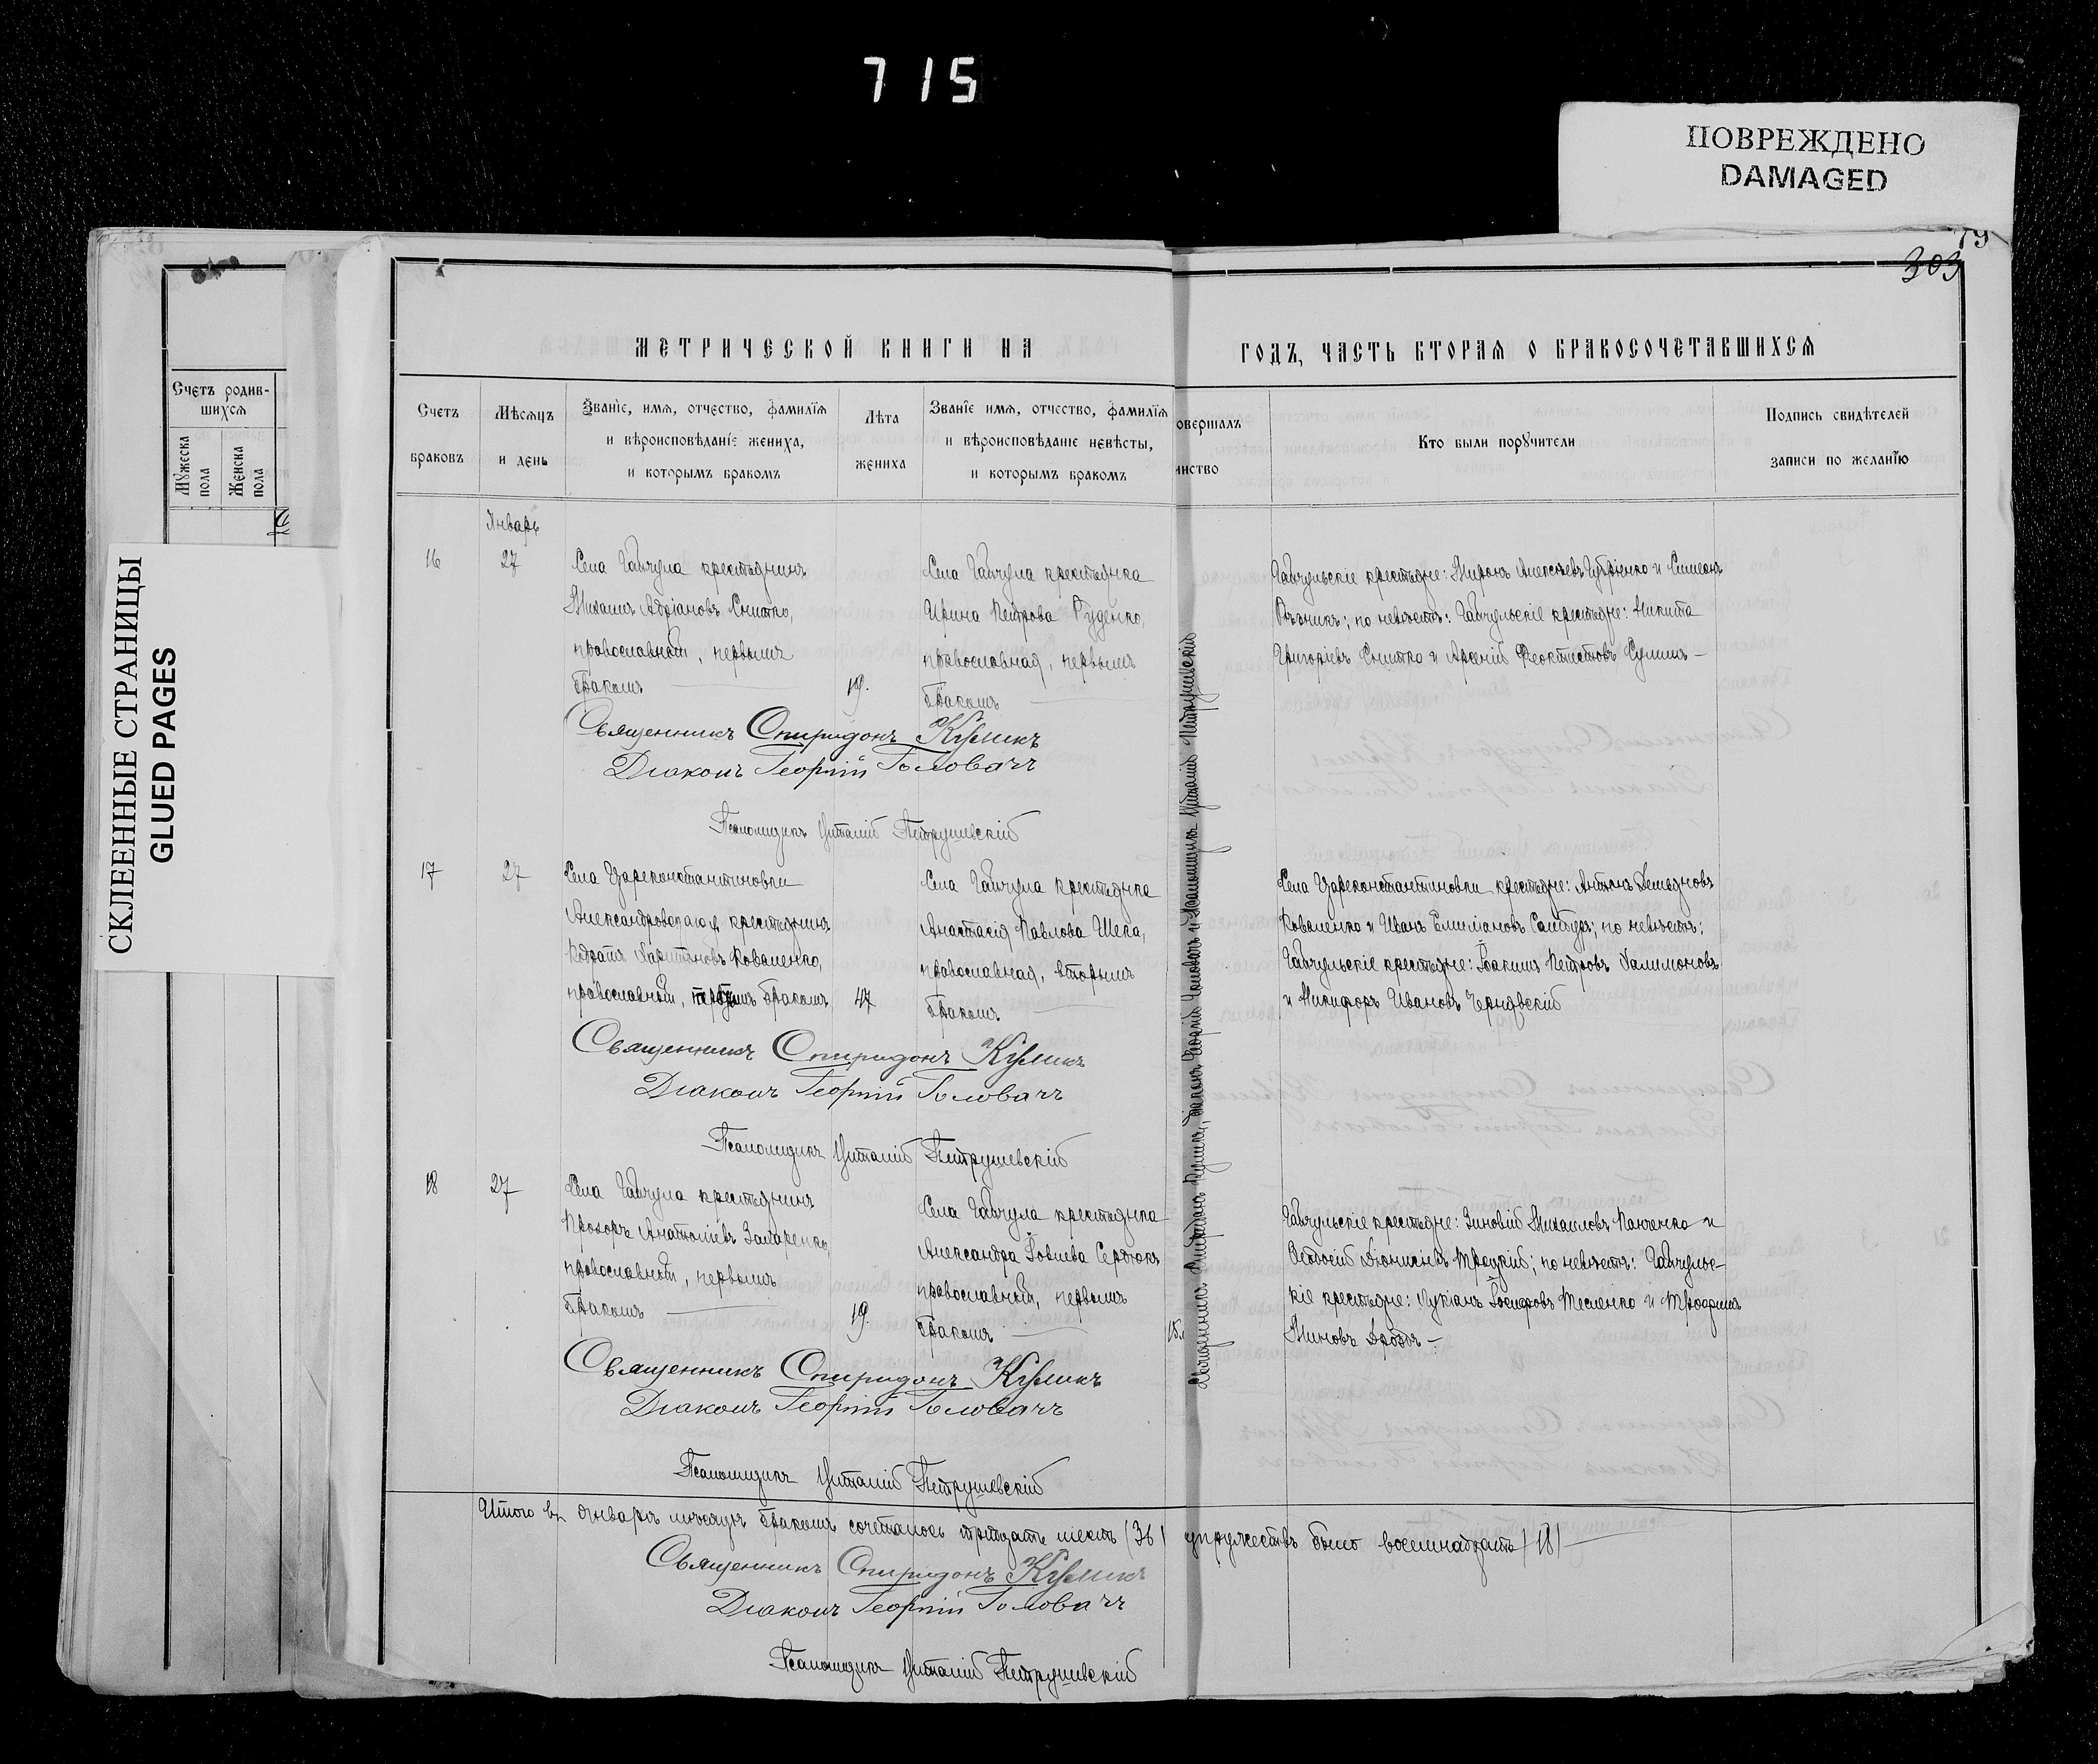 715
ПОВРЕЖДЕНО
DAMAGED
79
303
СКЛЕЕННЫЕ СТРАНИЦЫ
GLUED PAGES
Счетъ родив-
шихся
Мужеска
пола
Женска
пола
МЕТРИЧЕСКОЙ КНИГИ НА ГОДЪ, ЧАСТЬ ВТОРАЯ О БРАКОСОЧЕТАВШИХСЯ
Счетъ
браковъ
Мѣсяцъ
и день
Званіе, имя, отчество, фамилія
и вѣроисповѣданіе жениха,
и которымъ бракомъ
Лѣта
жениха
Званіе имя, отчество, фамилія
и вѣроисповѣданіе невѣсты,
и которымъ бракомъ
овершалъ
инство
Кто были поручители
Подпись свидѣтелей
записи по желанію
Январь
16
27
Села Гайчула крестьянинъ
Михаилъ Адріановъ Снитко,
православный, первымъ
бракомъ
19.
Села Гайчула крестьянка
Ирина Петрова Руденко,
православная, первымъ
бракомъ
Гайчульскіе крестьяне: Миронъ Алексѣевъ и Симеонъ
по невѣстѣ: Гайчульскіе крестьяне: Никита
Григорьевъ Снитко и Арсеній Феоктистовъ Сулимъ
Священникъ Спиридонъ Куликъ
Діаконъ Георгій Головачъ
Псаломщикъ Виталій Петрушевскій
17
27
Села Цареконстантиновки
Александровскаго у крестьянинъ
Харитоновъ Коваленко,
православный, бракомъ
47
Села Гайчула крестьянка
Анастасія Павлова Шека,
православная, вторымъ
бракомъ
Села Цареконстантиновки крестьяне: Антонъ Демьяновъ
Коваленко и Иванъ Емиліановъ по невѣстѣ:
Гайчульскіе крестьяне: Іоакимъ Петровъ
и Никифоръ Ивановъ Чернявскій
Священникъ Спиридонъ Куликъ
Діаконъ Георгій Головачъ
Псаломщикъ Виталій Петрушевскій
18
27
Села Гайчула крестьянинъ
Прохоръ Анатоліевъ Захаренко,
православный, первымъ
бракомъ
19.
Села Гайчула крестьянка
Александра Іовлева Сердюкъ
православный, первымъ
бракомъ
18.
Гайчульскіе крестьяне: Зиновій Михаиловъ Панченко и
Ѳеодосій Діонисіевъ Троцкій; по невѣстѣ: Гайчульс-
кіе крестьяне: Лукіанъ Іосифовъ Тесленко и Трофимъ
Миновъ Дроздъ
Священникъ Спиридонъ Куликъ
Діаконъ Георгій Головачъ
Псаломщикъ Виталій Петрушевскій
Священникъ Спиридонъ Куликъ, діаконъ Георгій Головачъ и Псаломщикъ Виталій Петрушевскій
Итого въ Январѣ мѣсяцѣ бракомъ сочеталось тридцать шесть (36) супружествъ было восемнадцать (18)
Священникъ Спиридонъ Куликъ
Діаконъ Георгій Головачъ
Псаломщикъ Виталій Петрушевскій